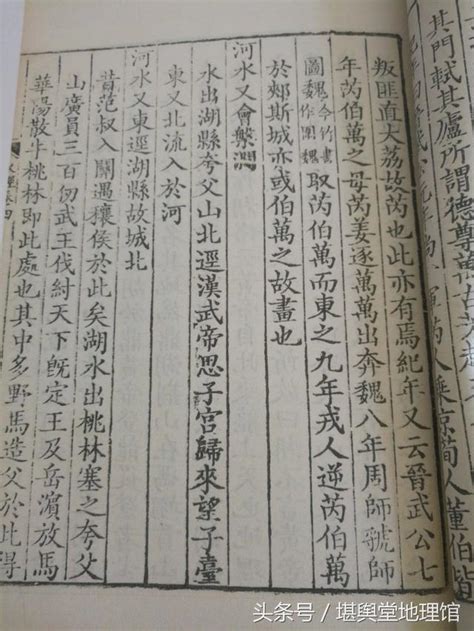 其門軾其廬所謂德尊
人乘京筒人董伯皆
叛匪直大荔故芮也此亦有焉紀年又云晉武公七
年芮伯萬之母芮姜逐萬萬出奔魏八年周師虢師
圍魏今竹書作圍魏取芮伯萬而東之九年戎人逆芮伯萬
於郟斯城亦或伯萬之故畫也
河水又會槃澗
水出湖縣夸父山北逕漢武帝思子宮歸來望子臺
東又北流入於河
河水又東逕湖縣故城北
昔范叔入關遇穰侯於此矣湖水出桃林塞之夸父
山廣員三百仞武王伐紂天下旣定王及岳濱放馬
華陽散牛桃林即此處也其中多野馬造父於此得
水經卷四
头条号／堪舆堂地理馆